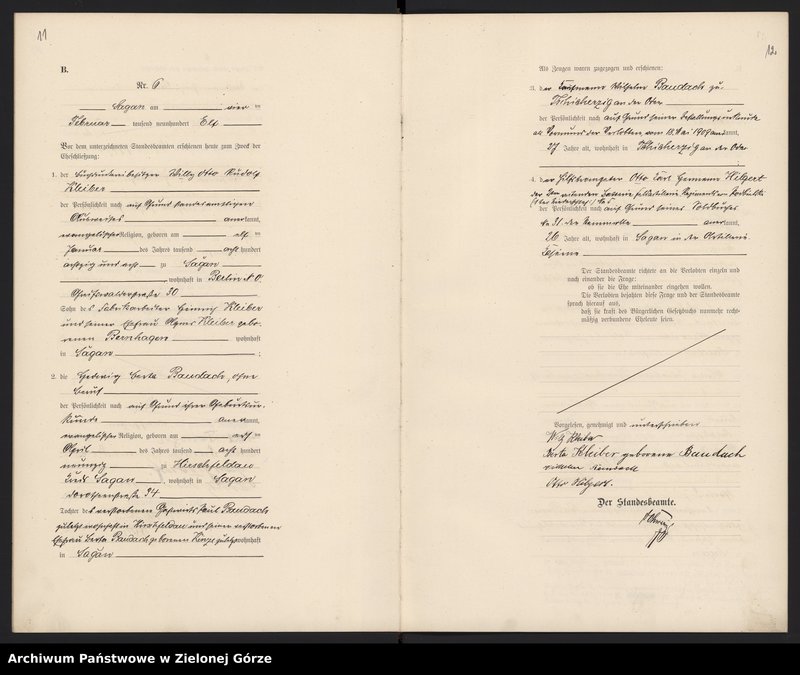 11
B.
Nr. 6
Sagan am vier ten
Februar tausend neunhundert Elf
Vor dem unterzeichneten Standesbeamten erschienen heute zum Zweck der
Eheschließung:
1. der Willy Otto Rudolf
Kleiber
der Persönlichkeit nach auf Grund standesamtlichen
Ausweises anerkannt,
evangelischer Religion, geboren am elf ten
Januar des Jahres tausend acht hundert
achtzig und acht zu Sagan
, wohnhaft in Berlin N.O.
Greifswalderstraße 30
Sohn des Fabrikarbeiter Heinrich Kleiber
und seiner Ehefrau Agnes Kleiber gebo-
renen Bernhagen wohnhaft
in Sagan ;
2. die Hedwig Berta Baudach, ohne
Beruf
der Persönlichkeit nach auf Grund ihrer Geburtsur-
kunde anerkannt,
evangelischer Religion, geboren am ten
April des Jahres tausend acht hundert
neunzig zu Hirschfeldau
Kreis Sagan, wohnhaft in Sagan
Dorotheenstraße 34
Tochter des verstorbenen Paul Baudach
zuletzt wohnhaft in Hirschfeldau und seiner verstorbenen
Ehefrau Berta Baudach geborenen zuletzt wohnhaft
in Sagan
12.
Als Zeugen waren zugezogen und erschienen:
3. der Kaufmann Wilhelm Baudach zu
Tschicherzig an der Oder
der Persönlichkeit nach auf Grund seiner Bestallungsurkunde
als Vormund der Verlobten, vom 13. Mai 1909 anerkannt,
27 Jahre alt, wohnhaft in Tschicherzig an der Oder
4. der Hilfstrompeter Otto Karl Hermann Hilgert
der Batterie Feldartillerie Regiment von Podbielski
der Persönlichkeit nach auf Grund seines Soldbuches
No 31 der anerkannt,
26 Jahre alt, wohnhaft in Sagan in der Artillerie
Kaserne
Der Standesbeamte richtete an die Verlobten einzeln und
nach einander die Frage:
ob sie die Ehe miteinander eingehen wollen.
Die Verlobten bejahten diese Frage und der Standesbeamte
sprach hierauf aus,
daß sie kraft des Bürgerlichen Gesetzbuchs nunmehr recht-
mäßig verbundene Eheleute seien.
Vorgelesen, genehmigt und unterschrieben
Kleiber
Berta Kleiber geborene Baudach
Wilhelm Baudach
Otto Hilgert.
Der Standesbeamte.
Archiwum Państwowe w Zielonej Górze